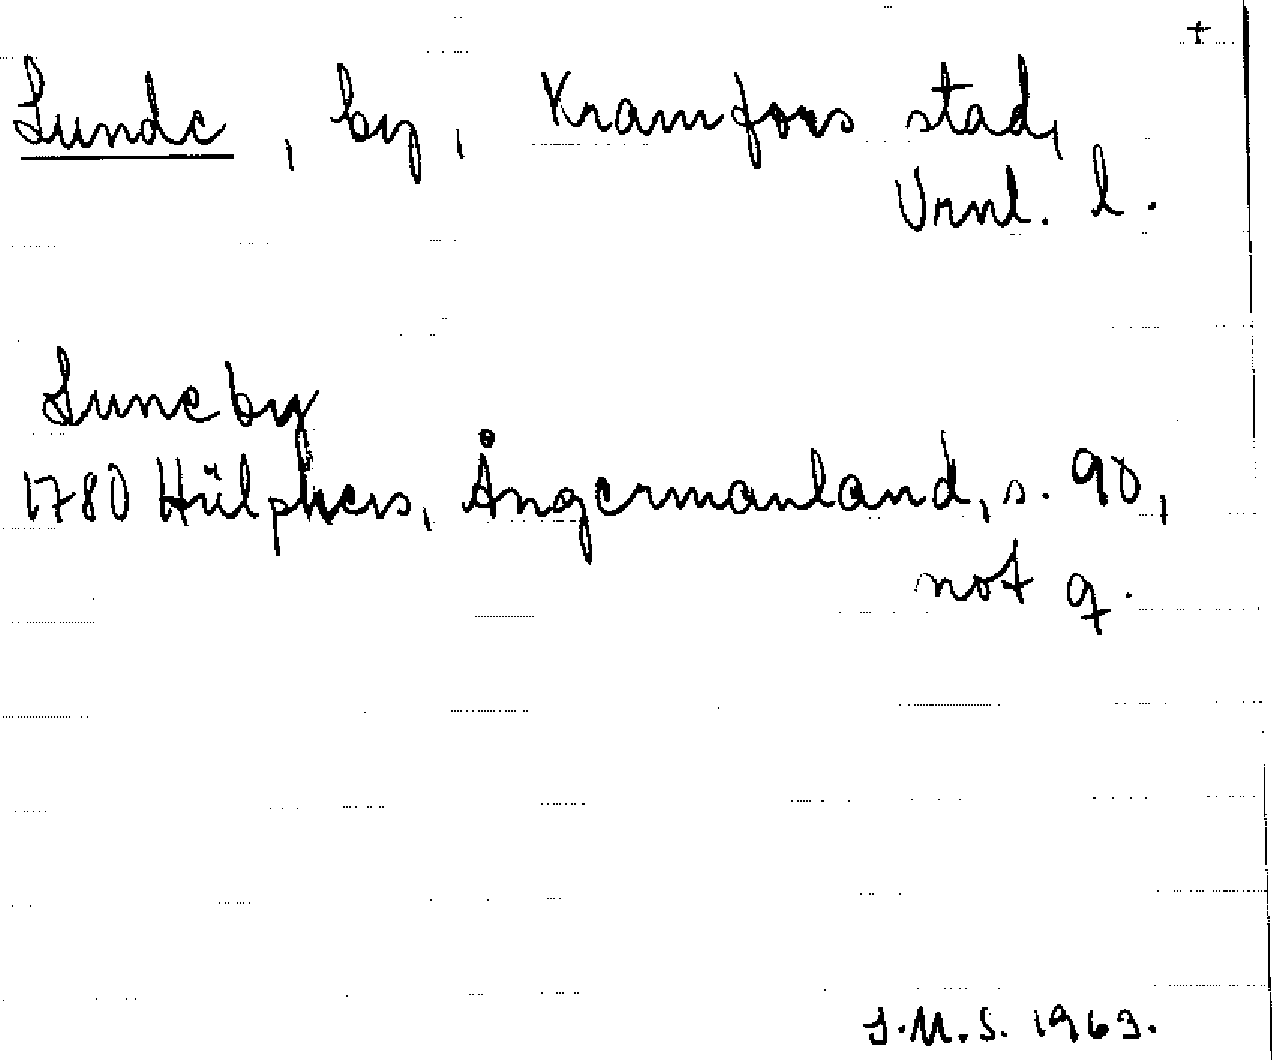 +
Lunde, by, Kramfors stad,
Vrnl. l.
Luneby
1780 Hülphers, Ångermanland, s. 90,
not q.
J.M.S. 1963.